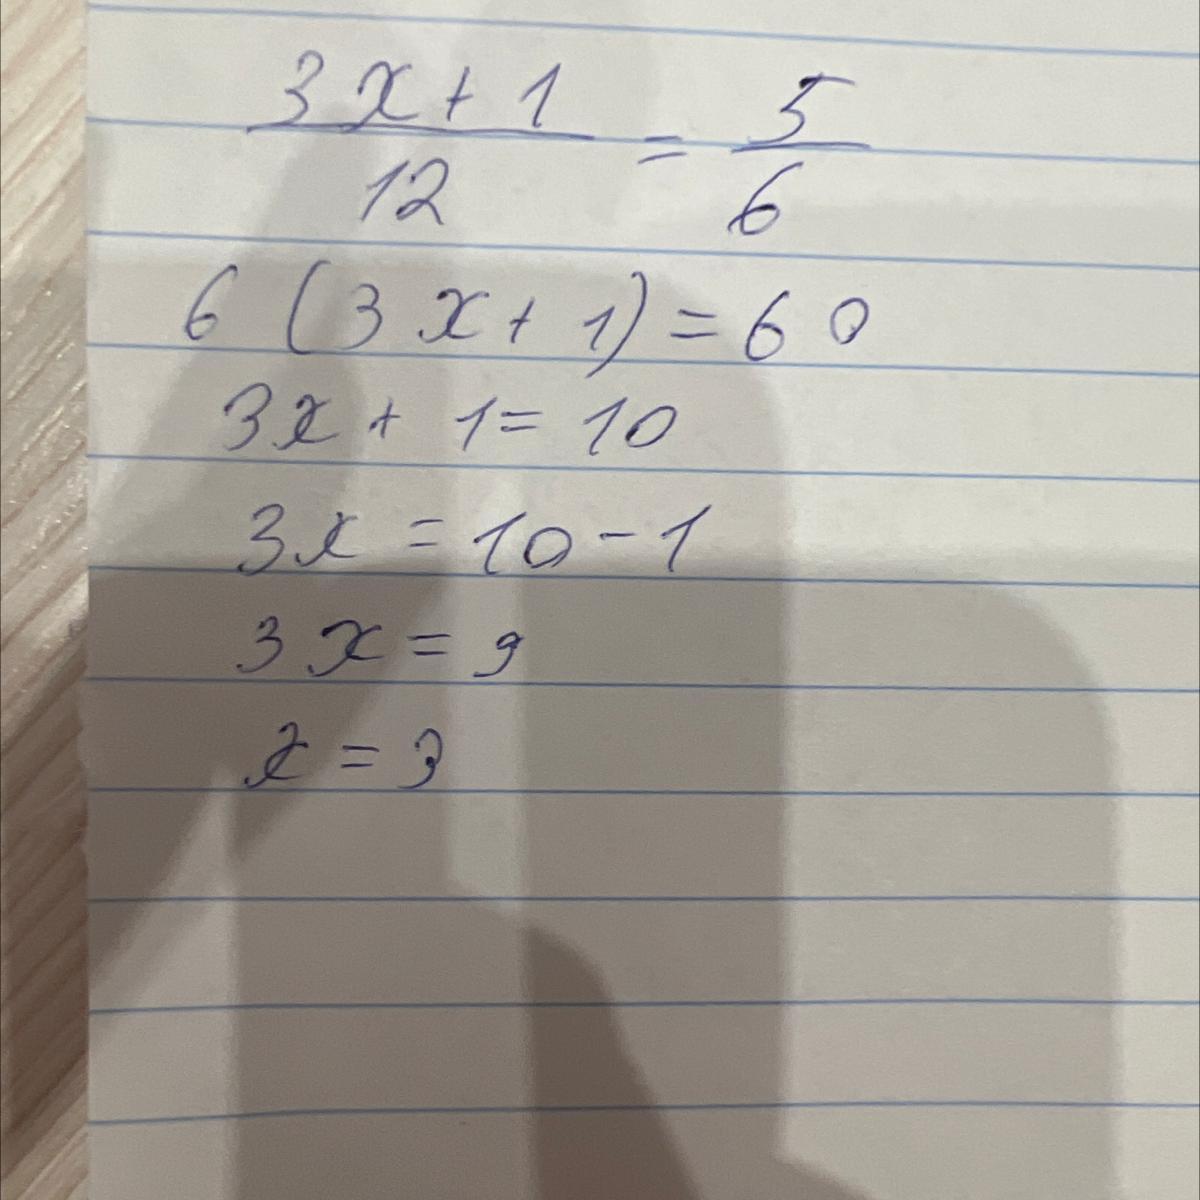 3x + 1 / 12 = 5 / 6
6 (3x + 1) = 60
3x + 1 = 10
3x = 10 - 1
3x = 9
x = 3